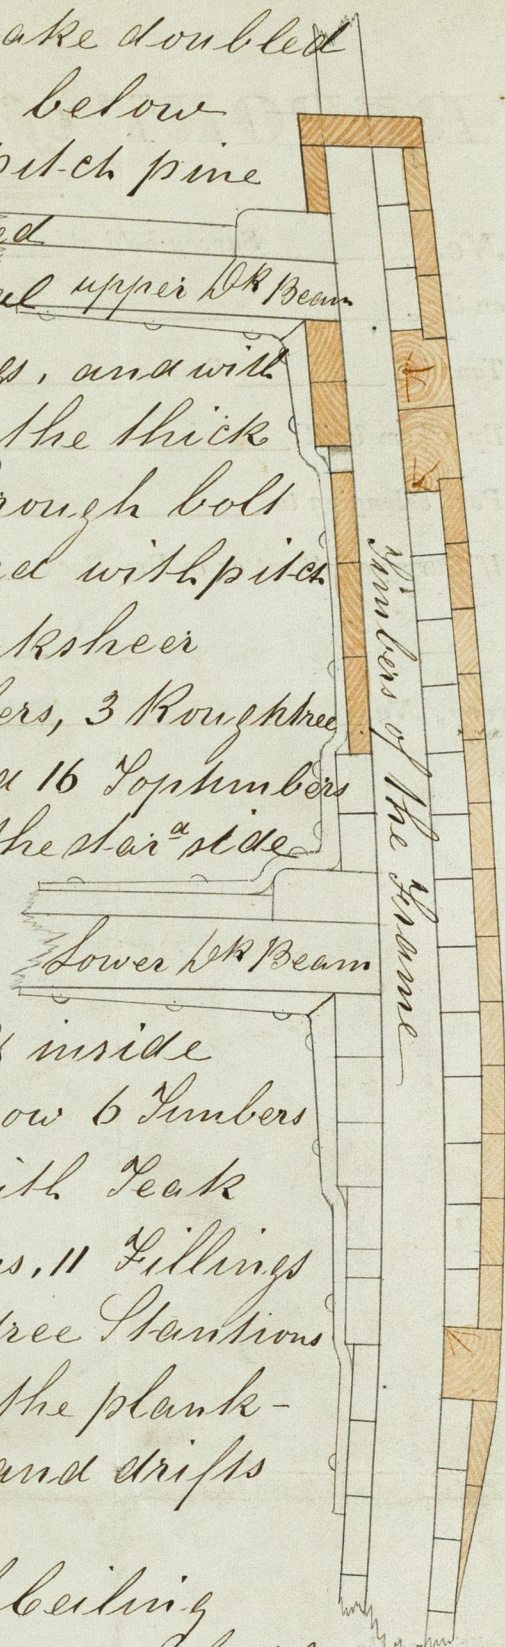 ake doubled
below
pitch pine
ed
upper Dk Beam
gs, and with
the thick
rough bolt
ed with pitch
ksheer
ers, 3 Roughtree
d 16 Toptimbers
the starᵈ side
Lower Dk Beam
& inside
ow 6 Timbers
ith Teak
s, 11 Fillings
tree Stantions
the plank-
and drifts
Ceiling
Timbers of the Frame